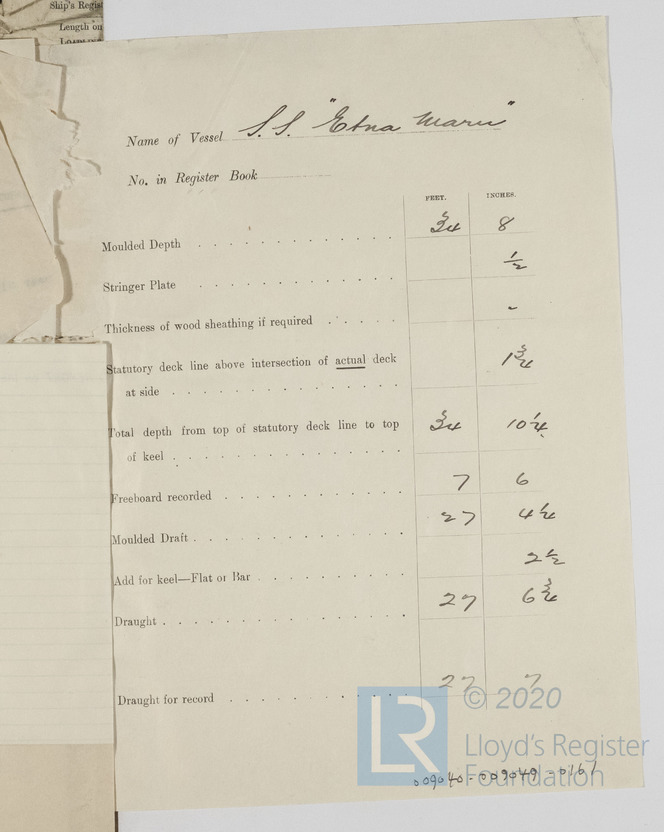 Ship's Regist
Length on
LOADLINE
Name of Vessel S.S. "Etna Maru"
No. in Register Book
FEET. INCHES.
Moulded Depth 34 8
Stringer Plate 1/2
Thickness of wood sheathing if required -
Statutory deck line above intersection of actual deck
at side 1 3/4
Total depth from top of statutory deck line to top
of keel 34 10 1/4
Freeboard recorded 7 6
Moulded Draft 27 4 1/4
Add for keel—Flat or Bar 2 1/2
Draught 27 6 3/4
Draught for record 27 7
LR © 2020
Lloyd's Register
Foundation
009040-009049-0161